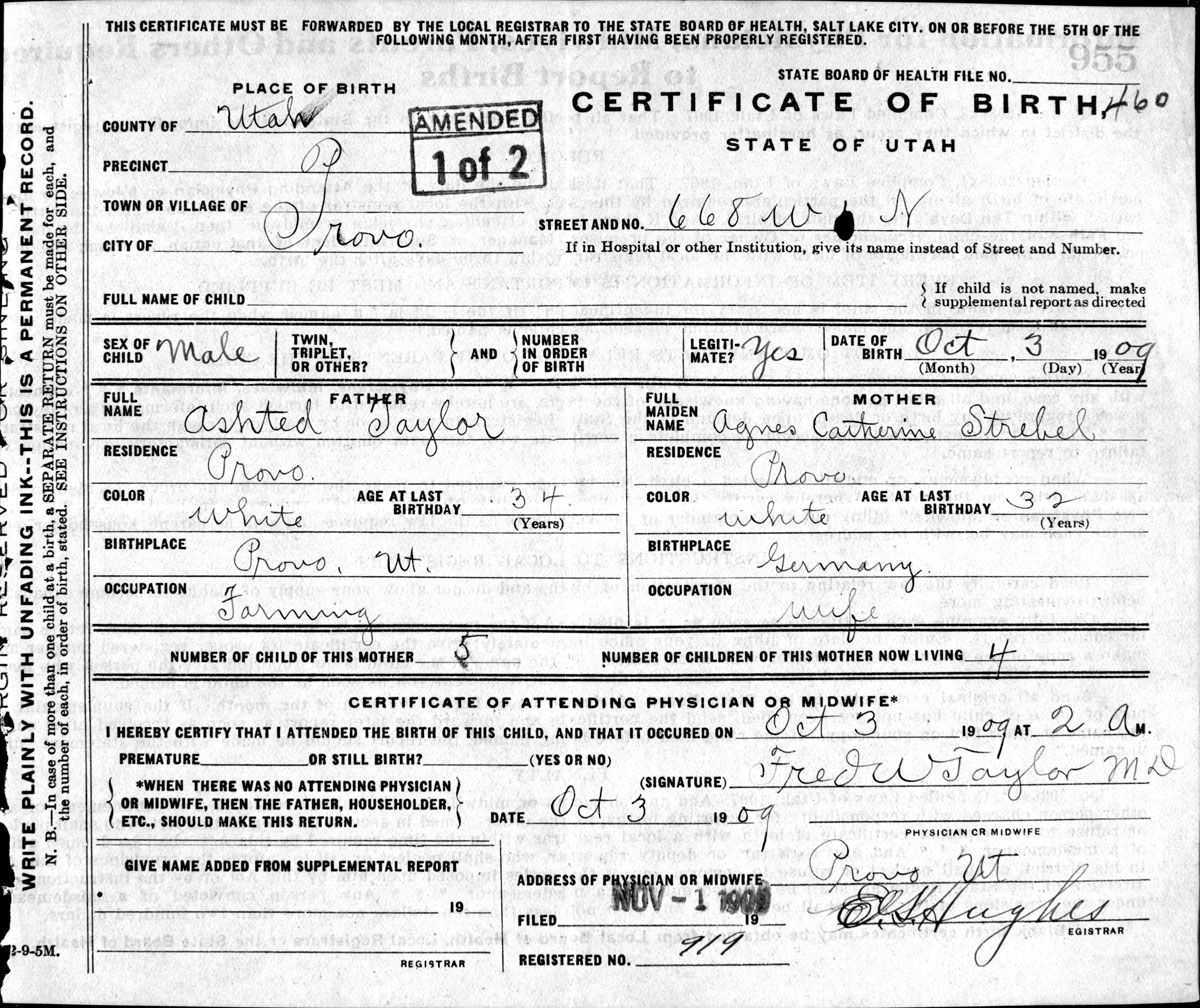 THIS CERTIFICATE MUST BE FORWARDED BY THE LOCAL REGISTRAR TO THE STATE BOARD OF HEALTH, SALT LAKE CITY. ON OR BEFORE THE 5TH OF THE
FOLLOWING MONTH, AFTER FIRST HAVING BEEN PROPERLY REGISTERED.
STATE BOARD OF HEALTH FILE NO.
PLACE OF BIRTH
CERTIFICATE OF BIRTH, 460
STATE OF UTAH
COUNTY OF Utah
AMENDED
1 of 2
PRECINCT P
TOWN OR VILLAGE OF
CITY OF Provo.
STREET AND NO. 668 W N
If in Hospital or other Institution, give its name instead of Street and Number.
FULL NAME OF CHILD
If child is not named, make
supplemental report as directed
SEX OF CHILD Male
TWIN, TRIPLET, OR OTHER?
AND
NUMBER IN ORDER OF BIRTH
LEGITI-MATE? Yes
DATE OF BIRTH Oct, 3 1909
(Month) (Day) (Year)
FATHER
FULL NAME Ashted Taylor
RESIDENCE Provo.
COLOR White
AGE AT LAST BIRTHDAY 34
(Years)
BIRTHPLACE Provo, Ut.
OCCUPATION Farming
MOTHER
FULL MAIDEN NAME Agnes Catherine Strebel
RESIDENCE Provo
COLOR White
AGE AT LAST BIRTHDAY 32
(Years)
BIRTHPLACE Germany.
OCCUPATION Wife
NUMBER OF CHILD OF THIS MOTHER 5
NUMBER OF CHILDREN OF THIS MOTHER NOW LIVING 4
CERTIFICATE OF ATTENDING PHYSICIAN OR MIDWIFE*
I HEREBY CERTIFY THAT I ATTENDED THE BIRTH OF THIS CHILD, AND THAT IT OCCURED ON Oct 3 1909 AT 2 A M.
PREMATURE OR STILL BIRTH? (YES OR NO)
(SIGNATURE) Fred W Taylor MD
*WHEN THERE WAS NO ATTENDING PHYSICIAN
OR MIDWIFE, THEN THE FATHER, HOUSEHOLDER,
ETC., SHOULD MAKE THIS RETURN.
DATE Oct 3 1909
PHYSICIAN OR MIDWIFE
GIVE NAME ADDED FROM SUPPLEMENTAL REPORT
19
REGISTRAR
ADDRESS OF PHYSICIAN OR MIDWIFE Provo Ut
FILED NOV -1 1909 19
E.S. Hughes
EGISTRAR
REGISTERED NO. 919
WRITE PLAINLY WITH UNFADING INK--THIS IS A PERMANENT RECORD.
N. B.—In case of more than one child at a birth, a SEPARATE RETURN must be made for each, and
the number of each, in order of birth, stated. SEE INSTRUCTIONS ON OTHER SIDE.
2-9-5M.